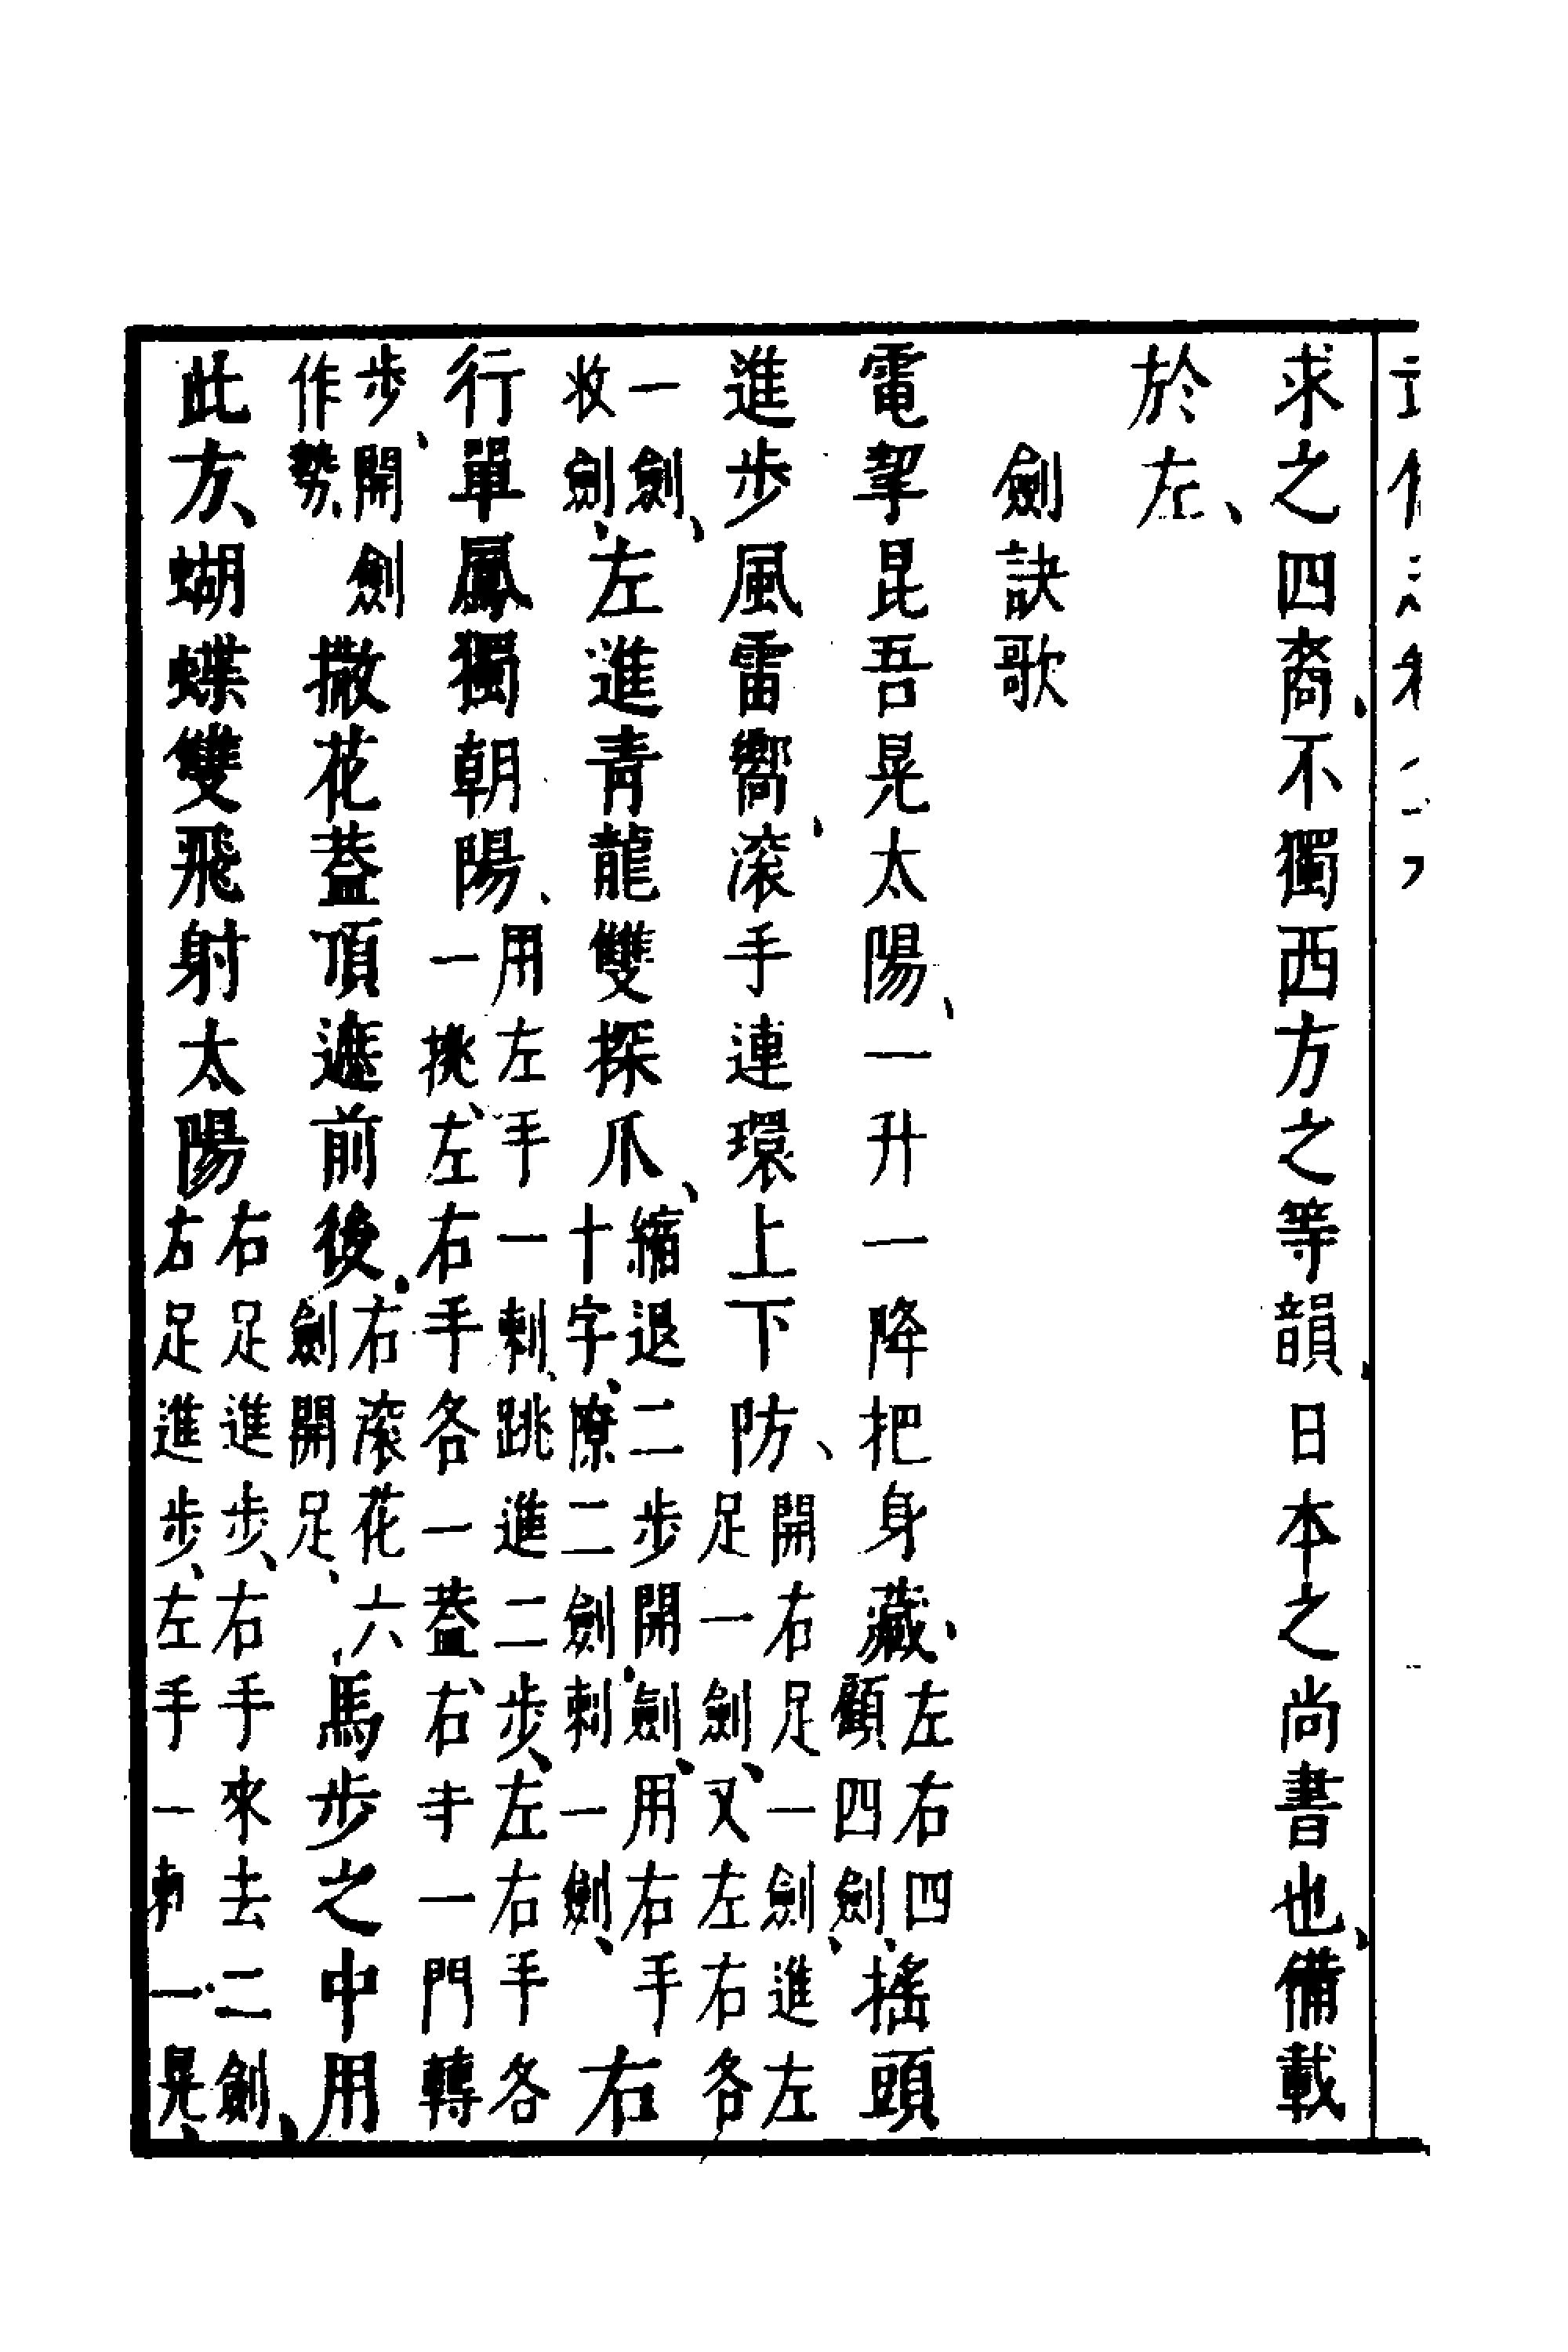 求之四裔、不獨西方之等韻、日本之尚書也、備載
於左、
劍訣歌
電挈昆吾晃太陽、一升一降把身藏、左右四顧四劍、搖頭
進步風雷嚮、滚手連環上下防、開右足一劍進左足一劍、又左右各
一劍、收劍、左進青龍雙探爪、縮退二步開劍、用右手十字、撩二劍刺一劍、右
行單鳳獨朝陽、用左手一刺、跳進二步、左右手各一挑、左右手各一蓋、右手一門轉
步、開劍作勢撒花蓋頂遮前後、右滚花六劍開足、馬步之中用
此方、蝴蝶雙飛射太陽右足進步、右手來去二劍、右足進步、左手一刺一晃、